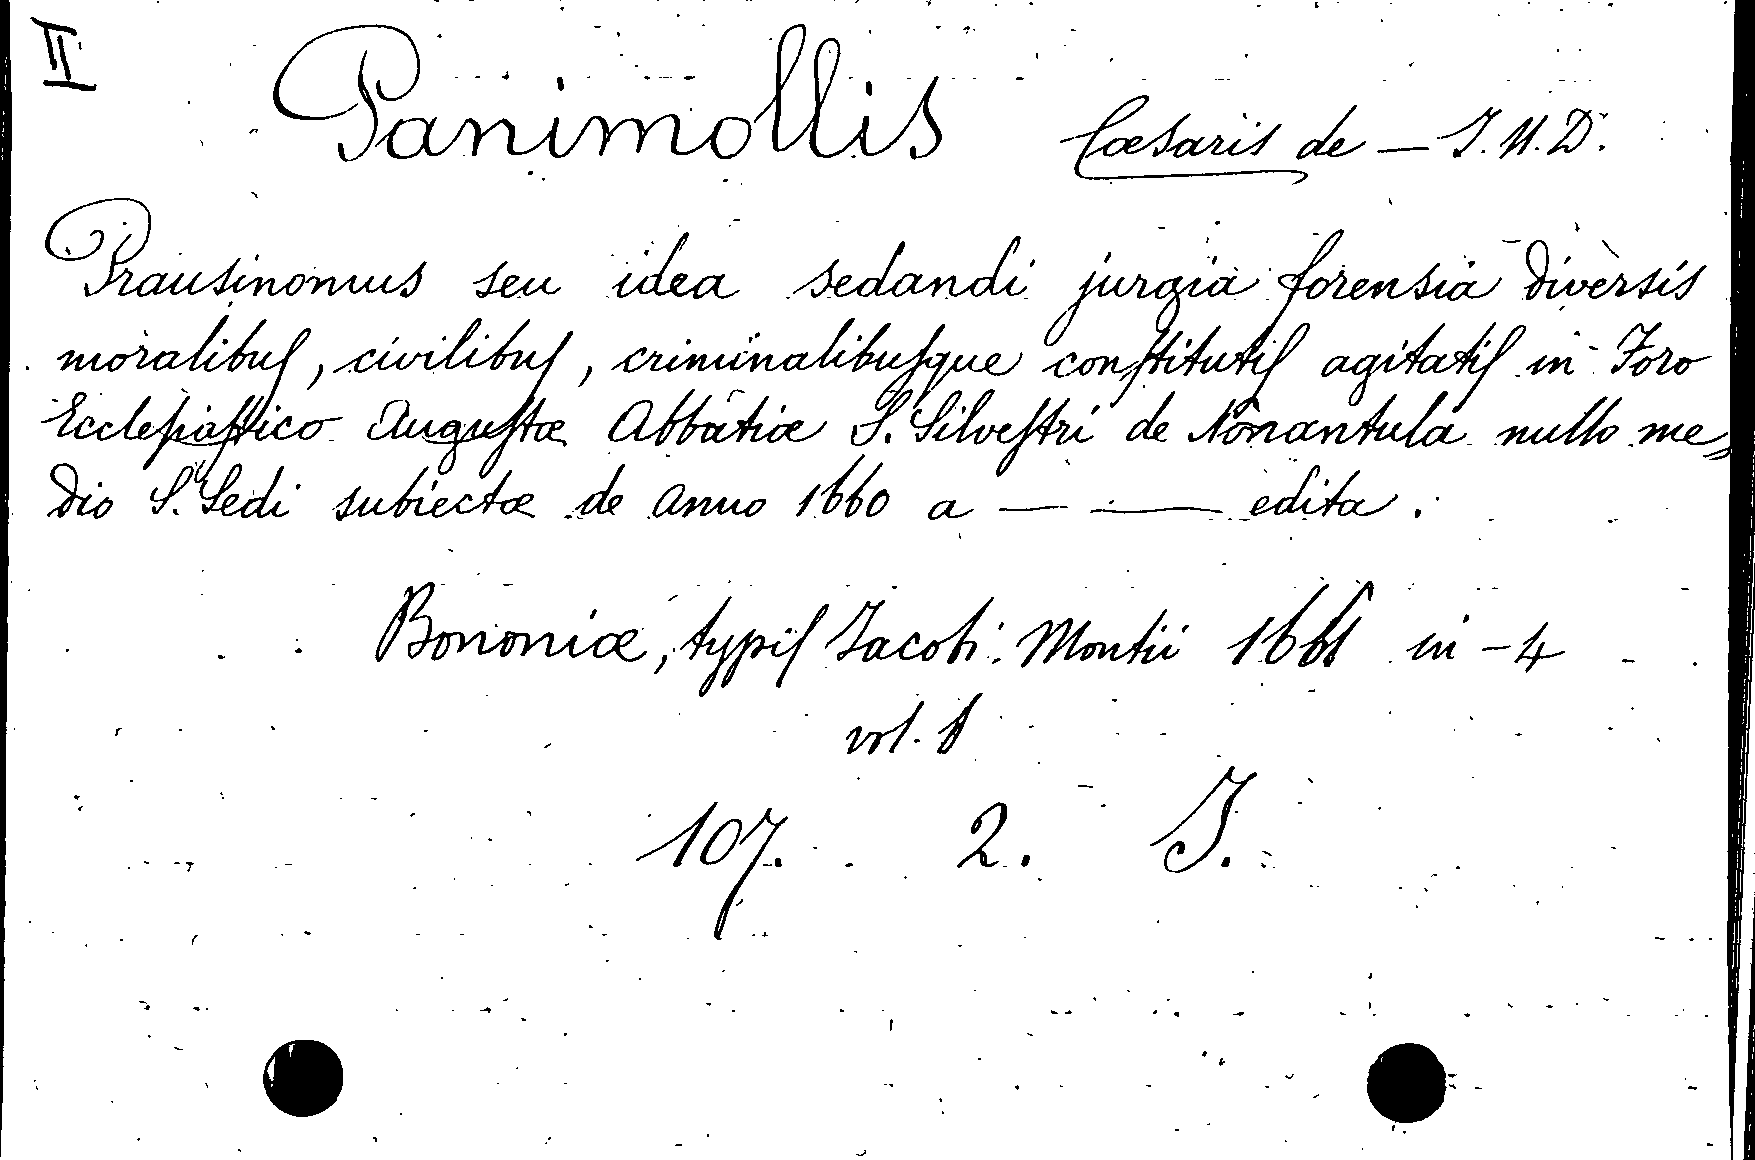 II
Panimollis Cæsaris de — J. U. D.
Prausinomus seu idea sedandi jurgia forensia diversis
moralibuſ, civilibuſ, criminalibuſque conſtitutiſ agitatiſ in Foro
Eccleſiaſtico Auguſtæ Abbatiæ S. Silveſtri de Nonantula nullo me„
dio S. Sedi subiectæ de anno 1660 a — — edita.
Bononiæ, typiſ Jacobi Montii 1661 in-4
vol. 1
107. 2. J.